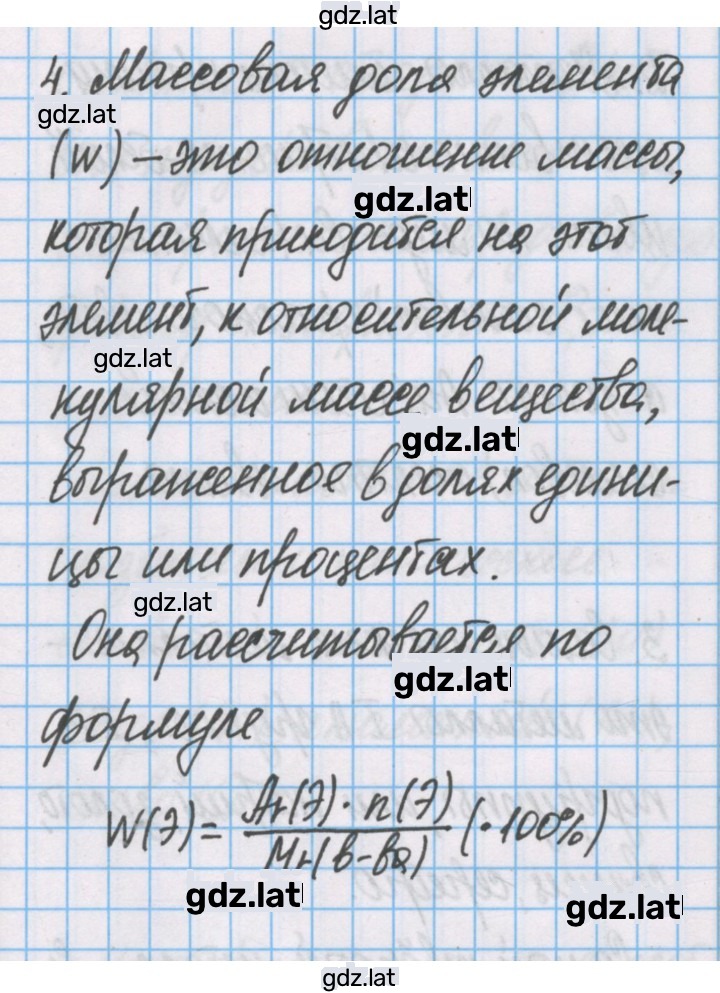 gdz.lat
4. Массовая доля элемента
gdz.lat
(w) – это отношение массы,
gdz.lat
которая приходится на этот
элемент, к относительной моле-
gdz.lat
кулярной массе вещества,
gdz.lat
выраженное в долях едини-
цы или процентах.
gdz.lat
Она рассчитывается по
gdz.lat
формуле
W(Э) = Ar(Э) · n(Э) / Mr(в-ва) (· 100%)
gdz.lat
gdz.lat
gdz.lat